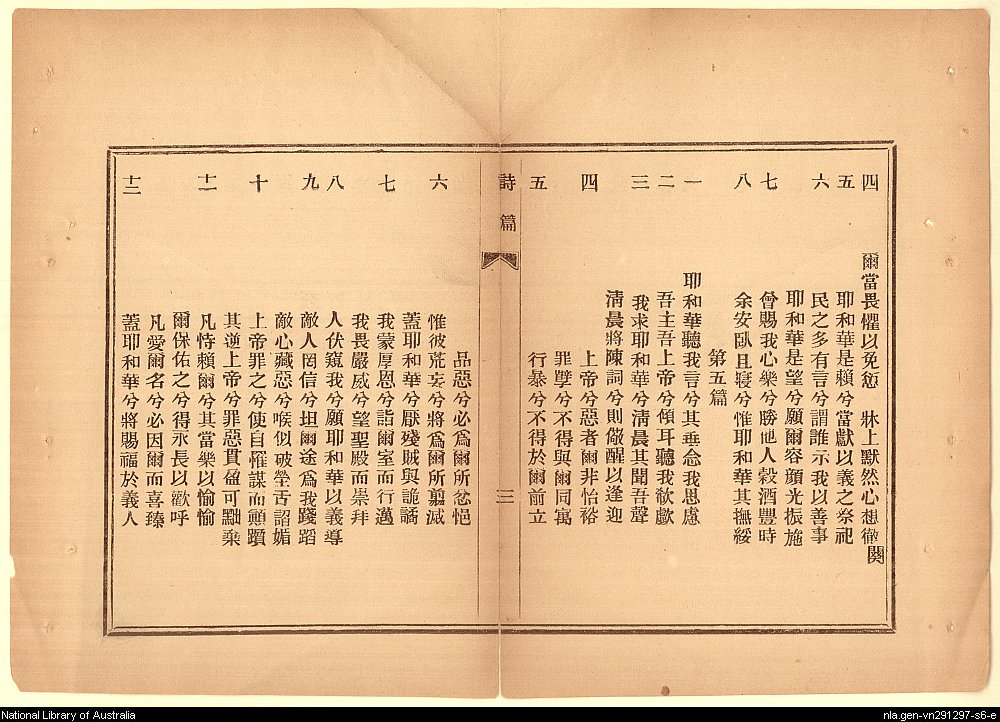 四 爾當畏懼以免愆 牀上默然心想徹 闋
五 耶和華是賴兮當獻以義之祭祀
六 民之多有言兮謂誰示我以善事
耶和華是望兮願爾容顏光振施
七 曾賜我心樂兮勝他人穀酒豐時
八 余安臥且寢兮惟耶和華其撫綏
第五篇
一 耶和華聽我言兮其垂念我思慮
二 吾主吾上帝兮傾耳聽我欷歔
三 我求耶和華兮淸晨其聞吾聲
淸晨將陳詞兮則儆醒以逢迎
四 上帝兮惡者爾非怡裕
罪孽兮不得與爾同寓
五 行暴兮不得於爾前立
詩篇 三
品惡兮必爲爾所忿悒
六 惟彼荒妄兮將爲爾所翦滅
蓋耶和華兮厭殘賊與詭譎
七 我蒙厚恩兮詣爾室而行邁
我畏嚴威兮望聖殿而崇拜
八 人伏窺我兮願耶和華以義導
九 敵人罔信兮坦爾途爲我踐蹈
敵心藏惡兮喉似破塋舌諂媚
十 上帝罪之兮使自罹謀而顚躓
其逆上帝兮罪惡貫盈可黜棄
十一 凡恃賴爾兮其當樂以愉愉
爾保佑之兮得永長以歡呼
凡愛爾名兮必因爾而喜臻
十二 蓋耶和華兮將賜福於義人
National Library of Australia
nla.gen-vn291297-s6-e